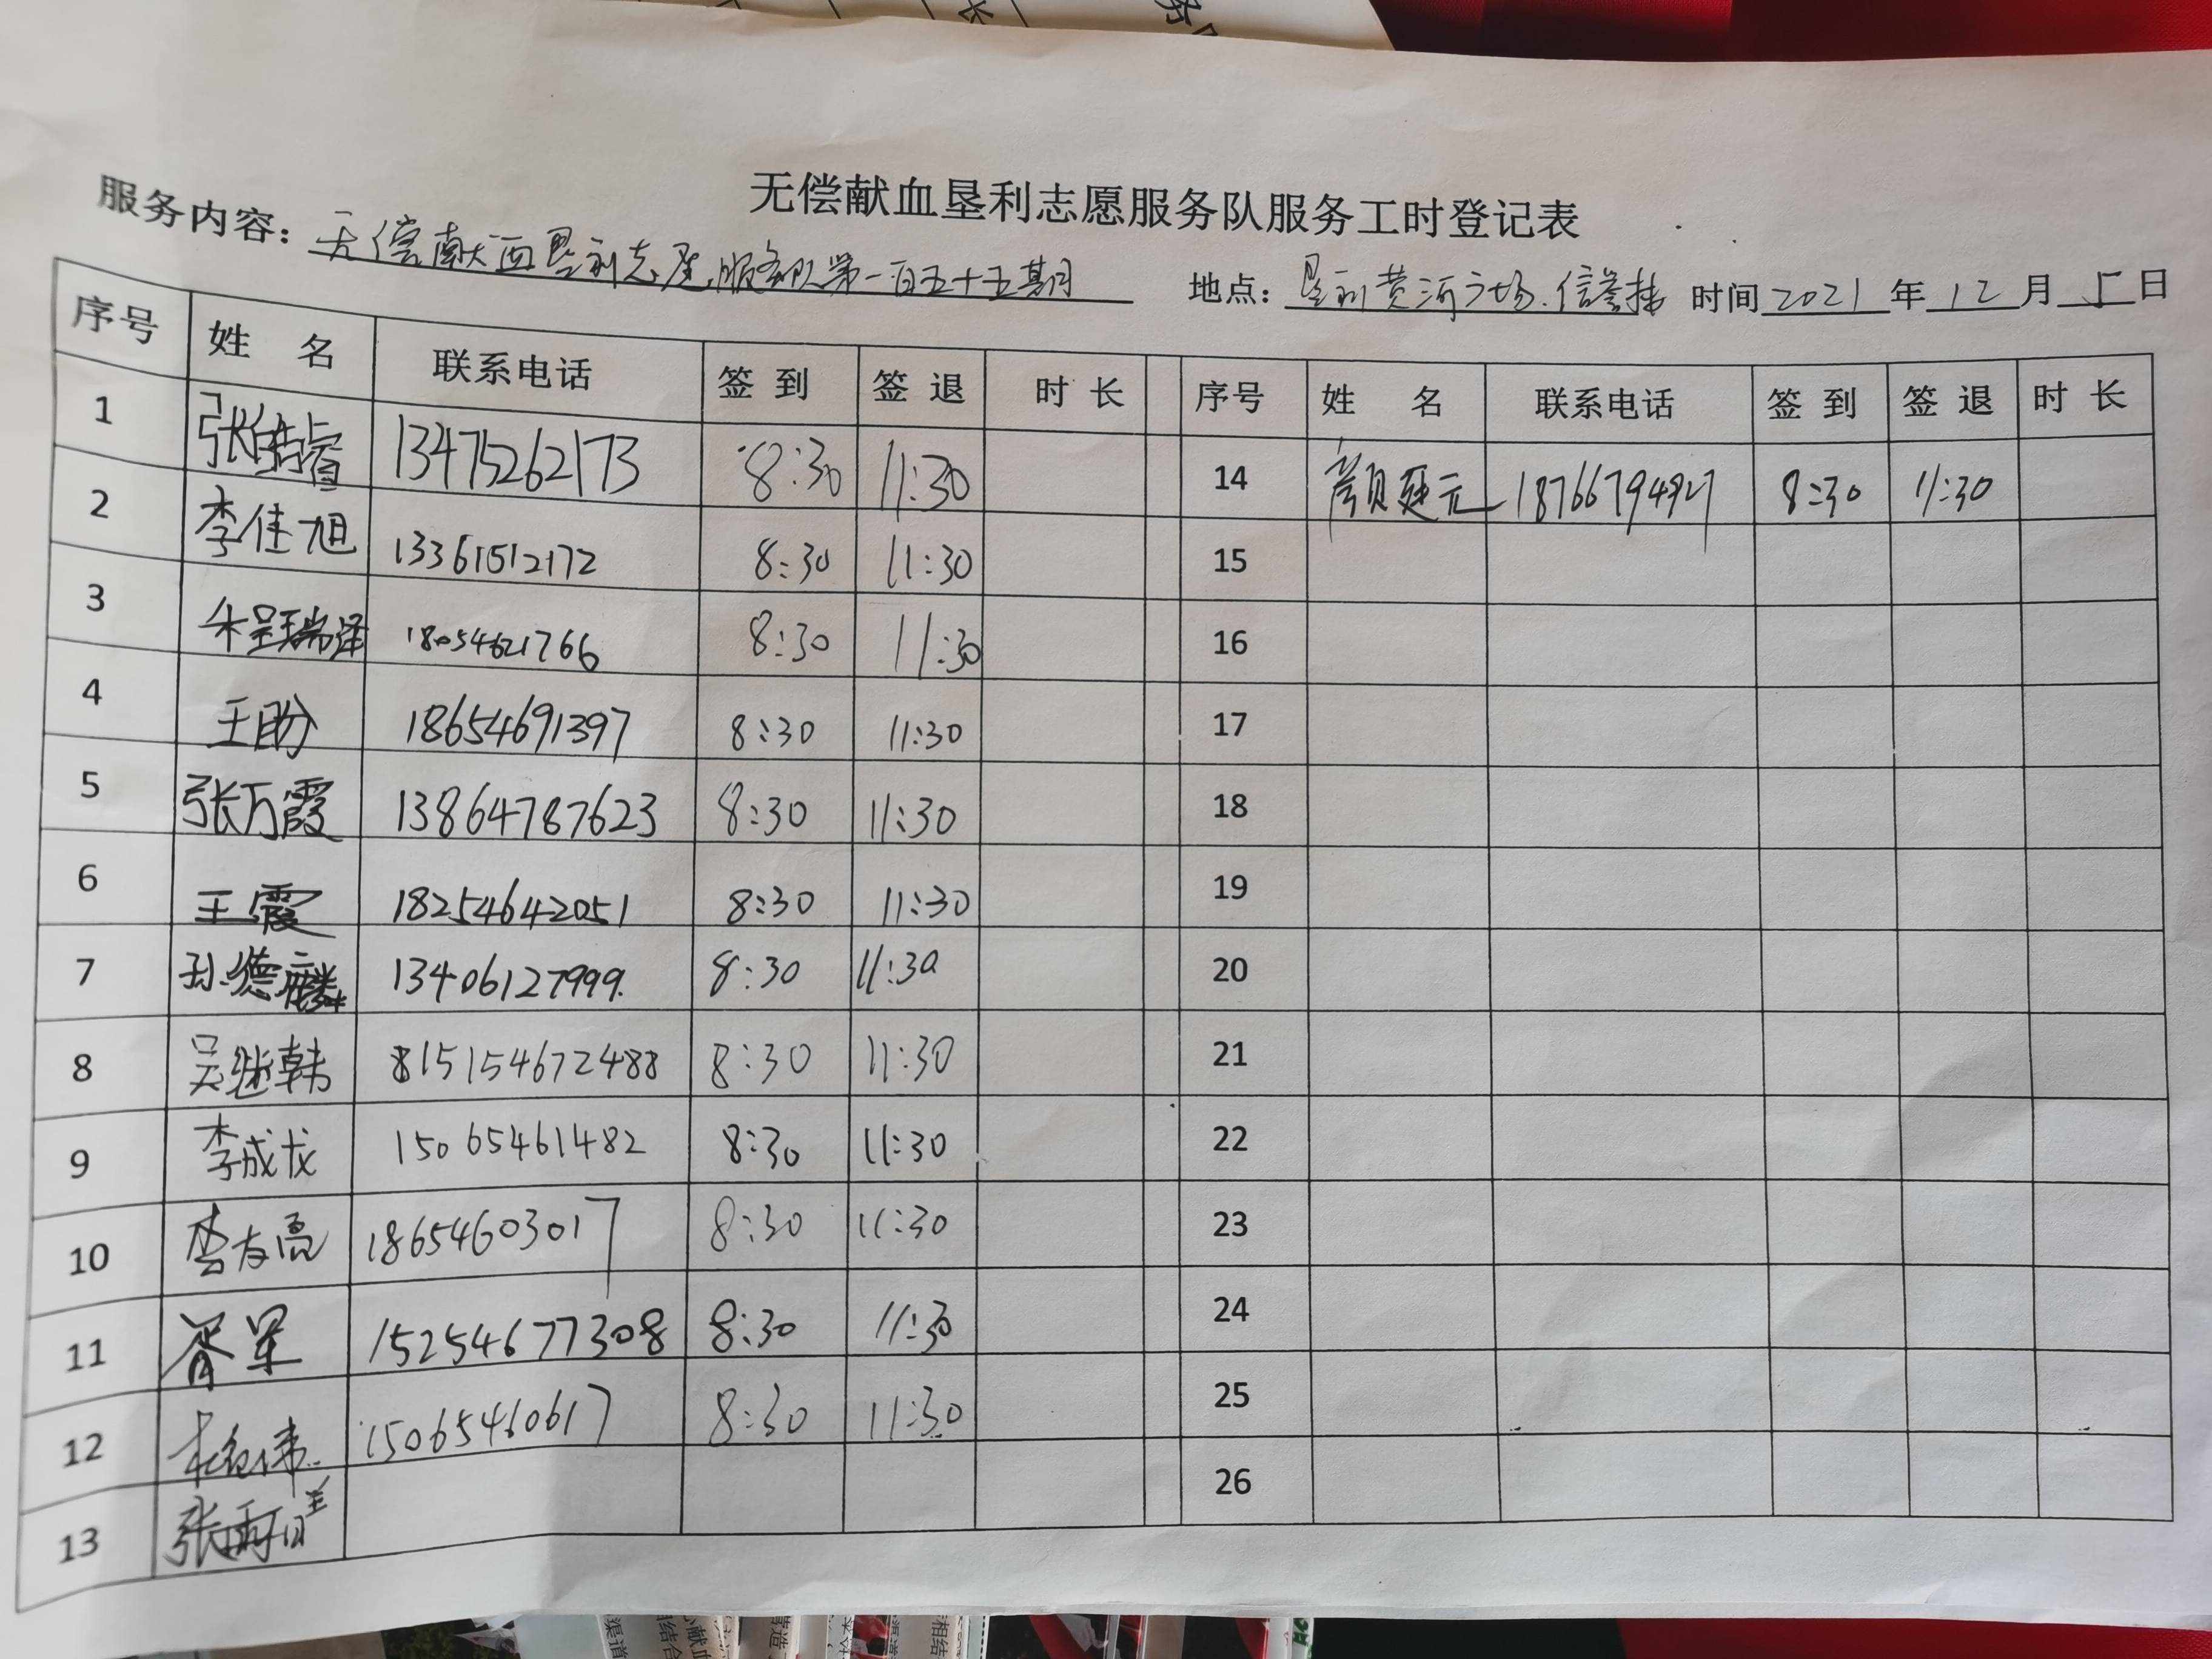 无偿献血垦利志愿服务队服务工时登记表
服务内容：无偿献血垦利志愿服务队第一百五十五期 地点：垦利黄河广场.信誉楼 时间 2021 年 12 月 5 日
序号 姓 名 联系电话 签 到 签 退 时 长 序号 姓 名 联系电话 签 到 签 退 时 长
1 张 13475262173 8:30 11:30 14 颜廷元 8:30 11:30
2 李佳旭 13361512172 8:30 11:30 15
3 瑞泽 18054621766 8:30 11:30 16
4 王盼 18654691397 8:30 11:30 17
5 张万霞 13864787623 8:30 11:30 18
6 王霞 18254642051 8:30 11:30 19
7 孙德麟 13406127999. 8:30 11:30 20
8 吴继韩 815154672488 8:30 11:30 21
9 李成龙 15065461482 8:30 11:30 22
10 李友亮 18654603017 8:30 11:30 23
11 胥军 15254677308 8:30 11:30 24
12 15065460617 8:30 11:30 25
13 张雨 26